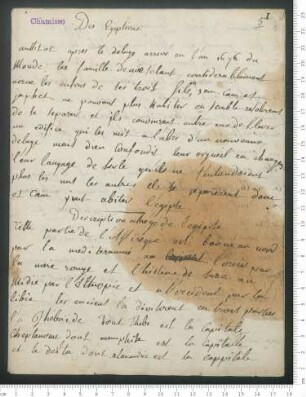 Chamisso
1
Des Egyptiens
aussitot apres le deluge arrivé en l'an 1656 du
Monde les famille de noé s'étant considerablement
acrue les enfans de ses trois fils, sem cam et
japhet, ne pouvant plus habiter ensemble resolurent
de se separer et ils convinrent entre eux d'elever
un edifice qui les mit a l'abri d'un nouveau
deluge mais dieu confondit leur orgueil en changeant
leur langage de sorte qu'ils ne s'entendoient
plus les uns les autres ils se separerent donc
et Cam vint abiter l'egypte
Description abregé de l'egypte
Cette partie de l'affrique est bornée au nord
par la mediterannée au l'orient par
la mere rouge et l'histme de suez au
Midi par l'Ethiopie et a l'occident par la
libie les anciens la diviserent en trois parties
la Thebaide dont Thebe est la capitale
dont memphis est la capitale
et le Delta dont alexandrie est la cappitale